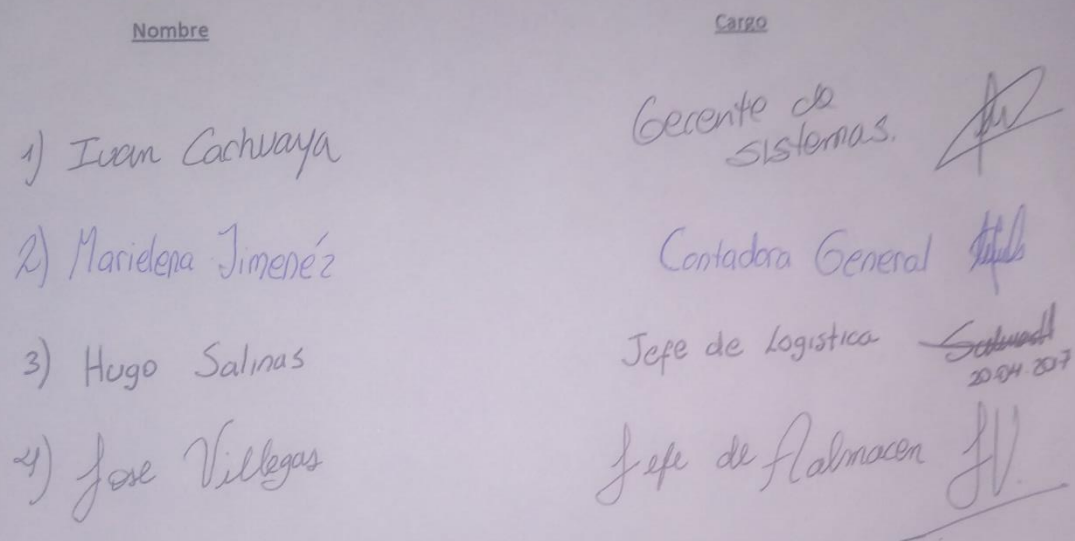 Nombre Cargo
1) Ivan Cachuaya Gerente de
sistemas.
2) Marielena Jimenéz Contadora General
3) Hugo Salinas Jefe de Logistica
20.04.2017
4) Jose Villegas Jefe de Almacen JV.